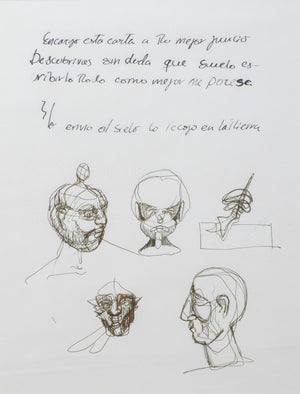 Encargo esta carta a tu mejor juicio
Descubrirás sin duda que suelo es-
cribirlo todo como mejor me parece
envío al suelo lo recojo en la tierra